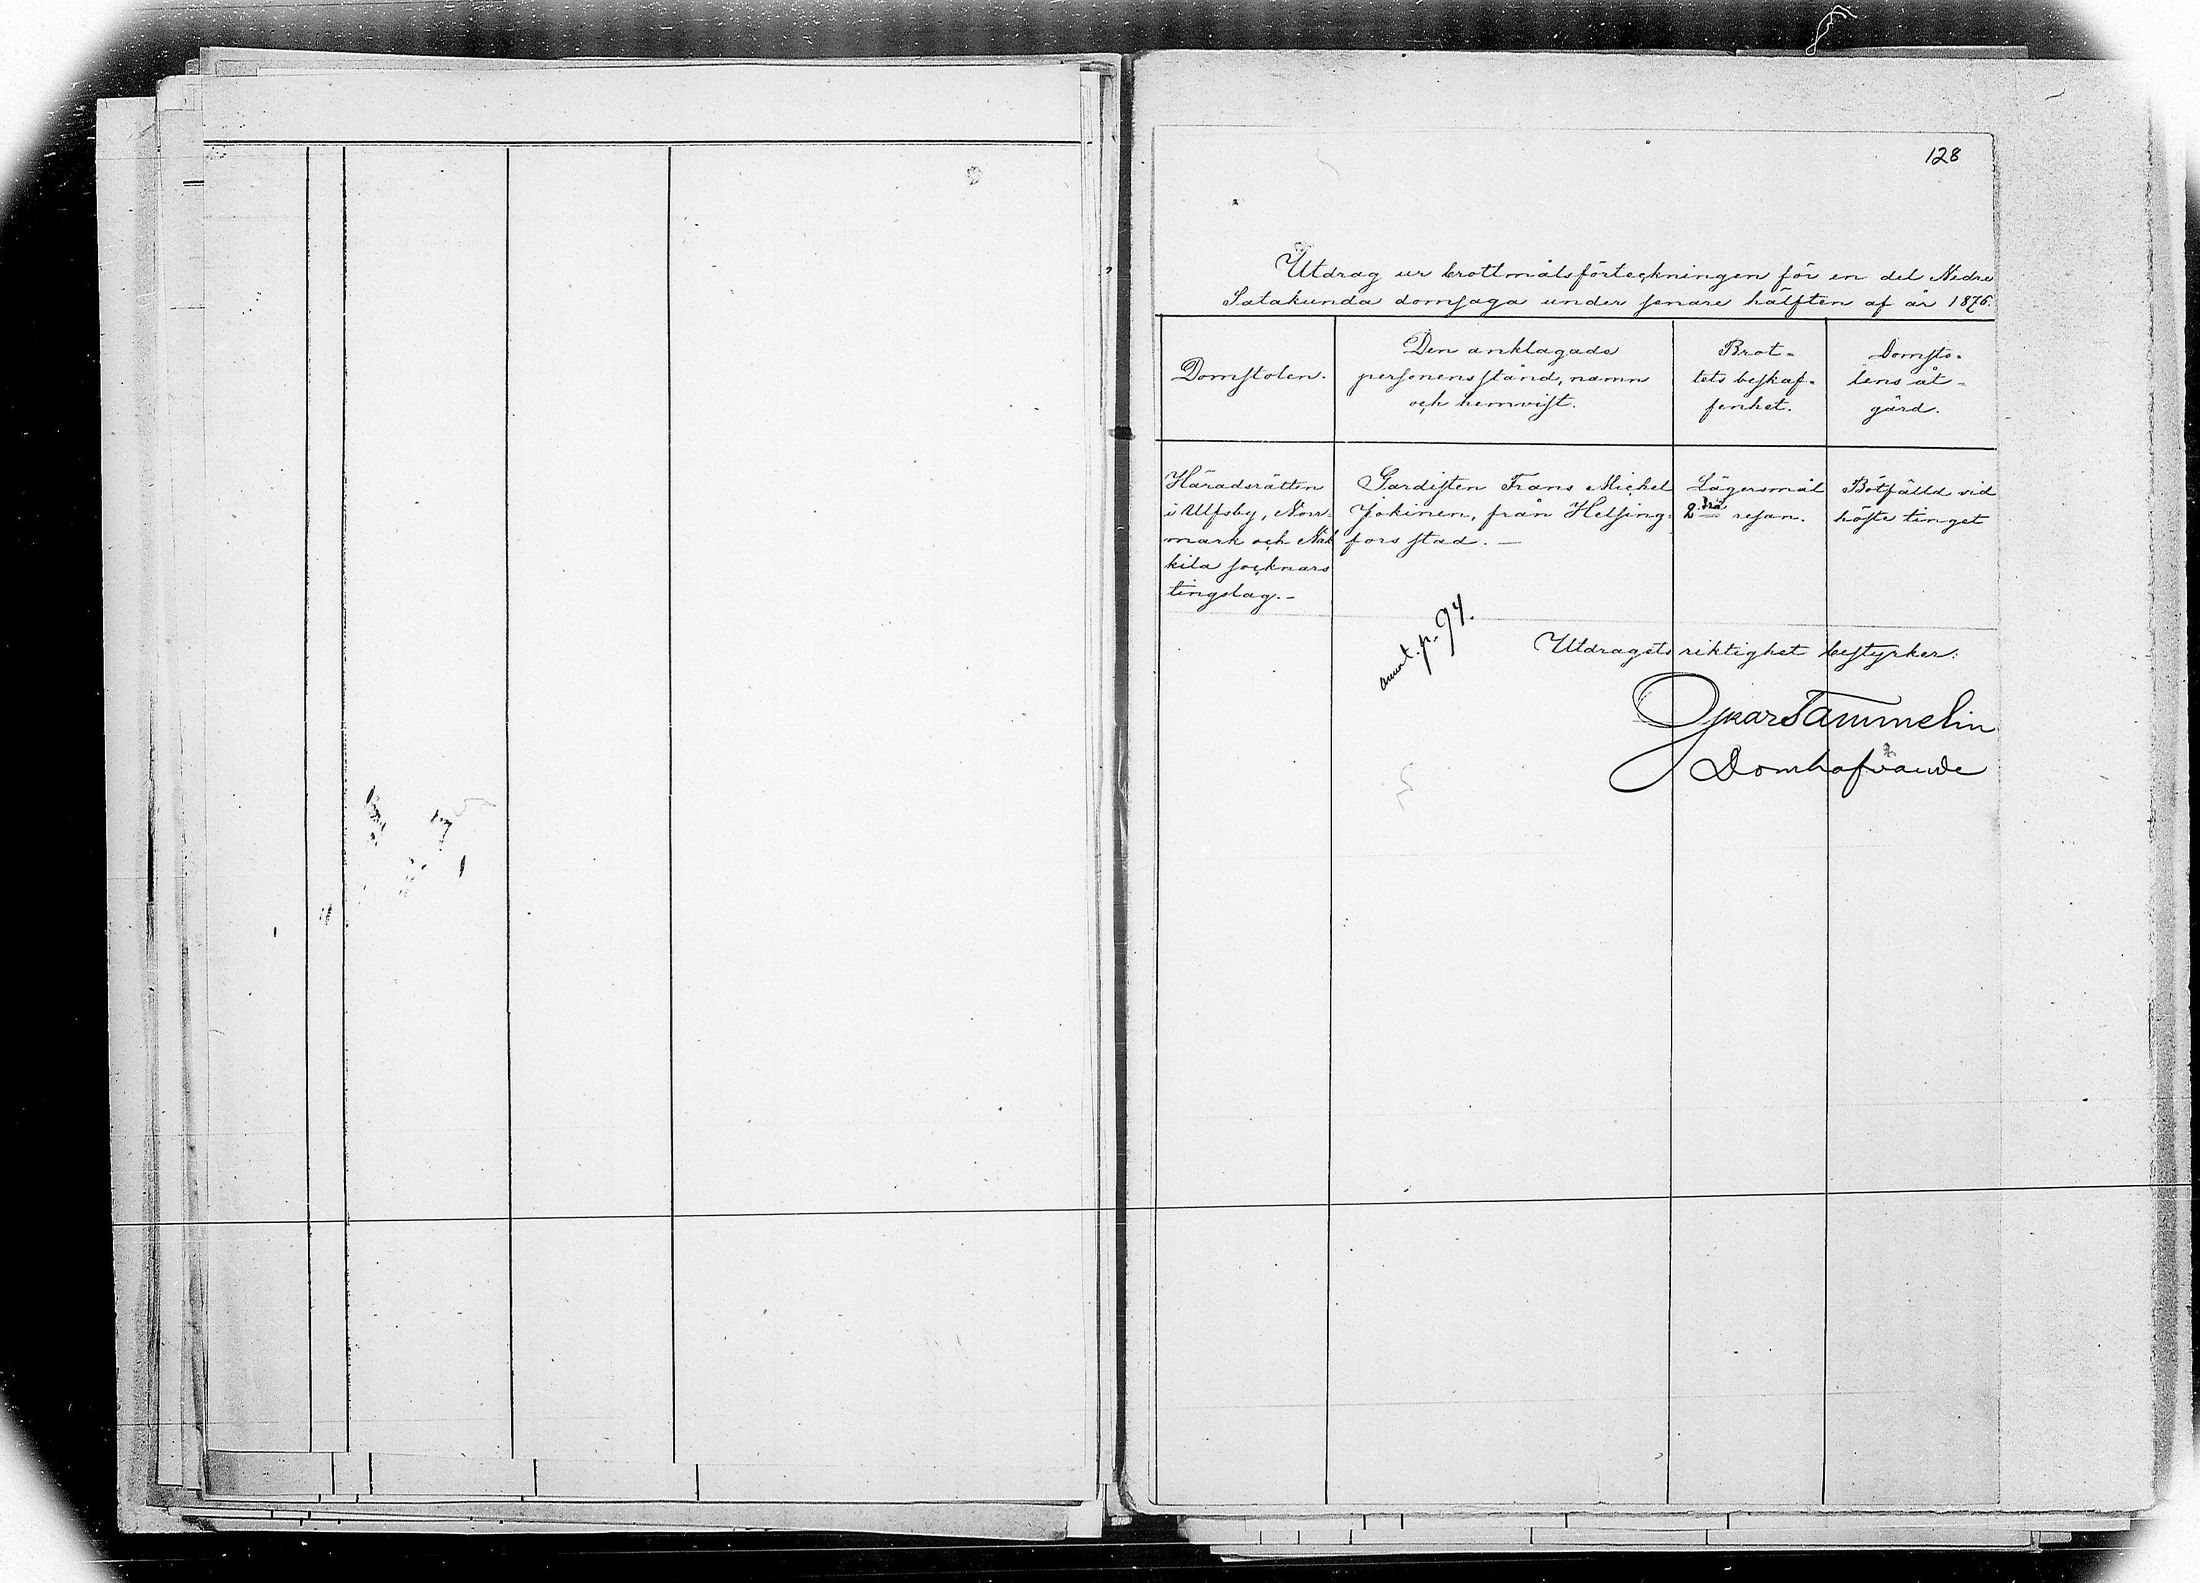 128
Utdrag ur brottmålsförteckningen för en del Nedre
Satakunda domsaga under senare hälften af år 1876.
Domstolen.
Den anklagade
personens stånd, namn
och hemvist.
Brot-
tets beskaf-
fenhet.
Domsto-
lens åt-
gärd.
Häradsrätten
i Ulfsby, Norr-
mark och Nak
kila socknars
tingslag.-
Gardisten Frans Michel
Jokinen, från Helsing-
fors stad. —
Lägersmål
2dra resan.
Bötfälld vid
höste tinget
annot. p. 94.
Utdragets riktighet bestyrker:
Oskar Tammelin
Domhafvande